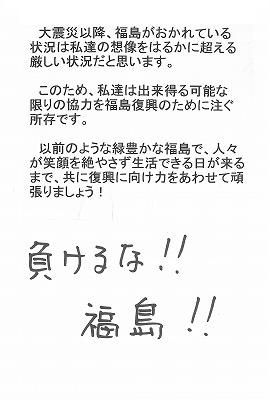 大震災以降、福島がおかれている
状況は私達の想像をはるかに超える
厳しい状況だと思います。
このため、私達は出来得る可能な
限りの協力を福島復興のために注ぐ
所存です。
以前のような緑豊かな福島で、人々
が笑顔を絶やさず生活できる日が来る
まで、共に復興に向け力をあわせて頑
張りましょう！
負けるな!!
福島!!